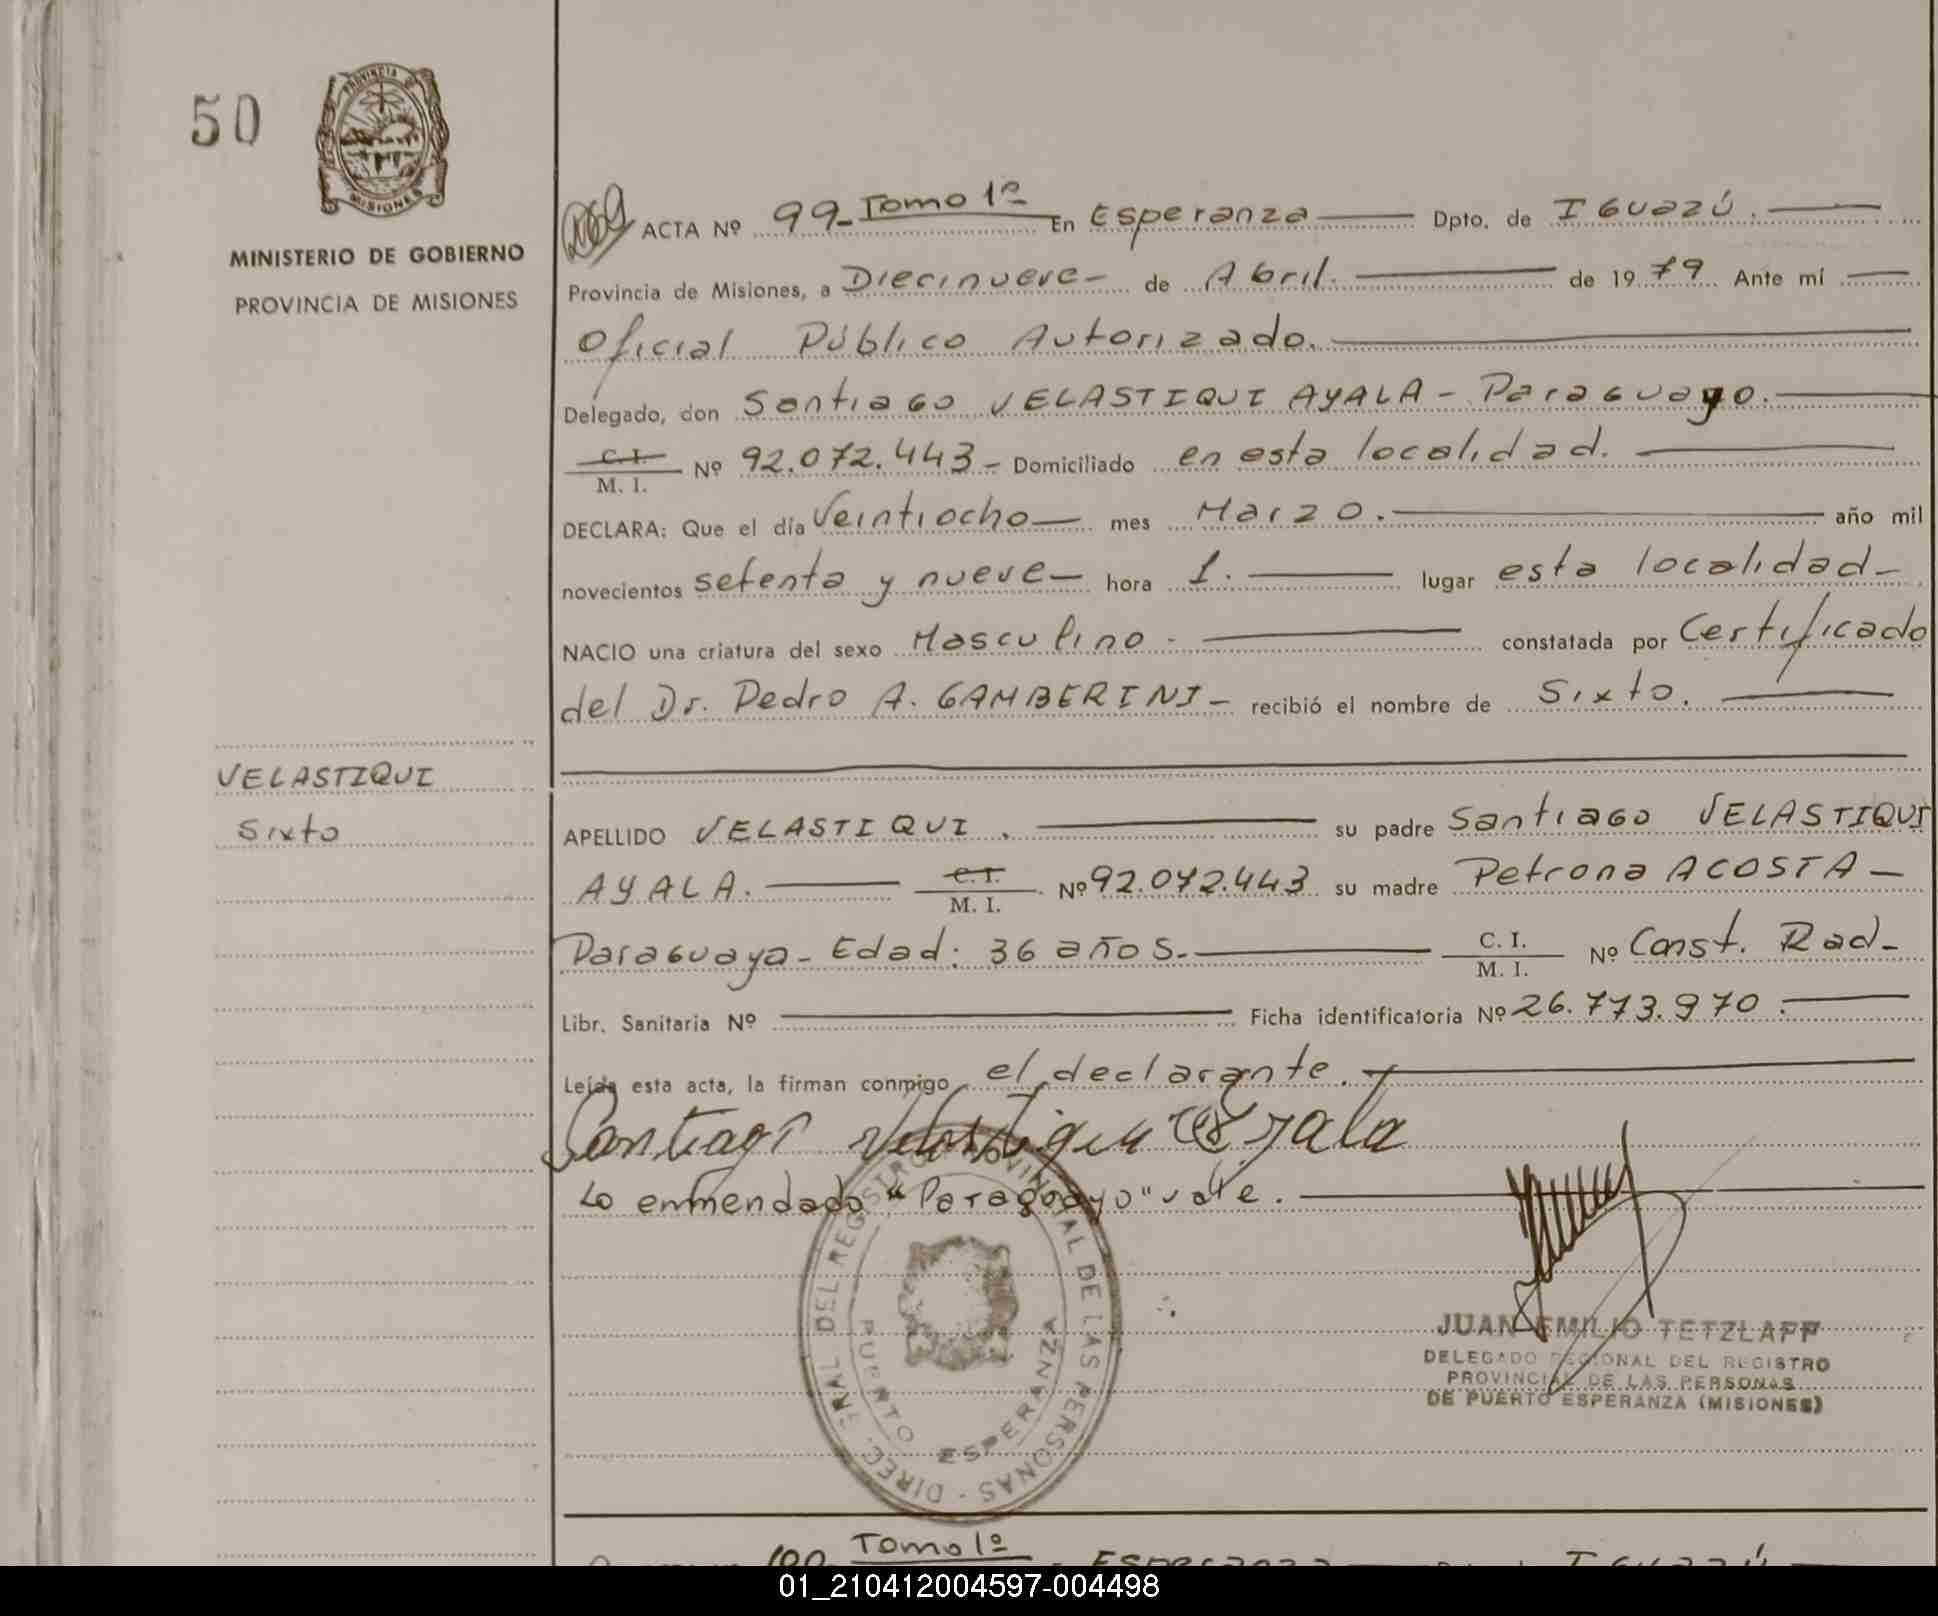 50
PROVINCIA DE
MISIONES
MINISTERIO DE GOBIERNO
PROVINCIA DE MISIONES
VELASTIQUI
Sixto
ACTA Nº 99- Tomo 1º En Esperanza Dpto. de IGUAZÚ.
Provincia de Misiones, a Diecinueve- de Abril. de 1979 Ante mí
Oficial Público Autorizado.
Delegado, don Santiago VELASTIQUI AYALA - Paraguayo.
C. I. M. I. Nº 92.072.443- Domiciliado en esta localidad.
DECLARA: Que el día Veintiocho mes Marzo. año mil
novecientos setenta y nueve- hora 1. lugar esta localidad-
NACIO una criatura del sexo Masculino - constatada por Certificado
del Dr. Pedro A. GAMBERINI- recibió el nombre de Sixto.
APELLIDO VELASTIQUI. su padre Santiago VELASTIQUI
AYALA. C. I. M. I. Nº 92.072.443 su madre Petrona ACOSTA-
Paraguaya- Edad: 36 años.- C. I. M. I. Nº Const. Rad-
Libr. Sanitaria Nº Ficha identificatoria Nº 26.773.970.
Leída esta acta, la firman conmigo el declarante.
Santiago Velastiqui Ayala
Lo enmendado "Paraguayo" vale.
DIREC. GRAL DEL REGISTRO PROVINCIAL DE LAS PERSONAS -
PUERTO ESPERANZA
JUAN EMILIO TETZLAFF
DELEGADO REGIONAL DEL REGISTRO
PROVINCIAL DE LAS PERSONAS
DE PUERTO ESPERANZA (MISIONES)
100 Tomo 1º Esperanza IGUAZÚ
01_210412004597-004498